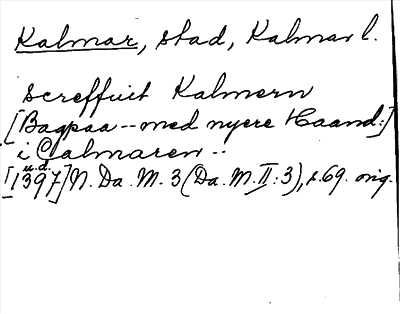 Kalmar, stad, Kalmar l.
screffuit Kalmern
[Bagpaa -- med nyere Haand:]
i Calmaren --
u.d.
[1397] N. Da. M. 3 (Da. M. II: 3), s. 69. orig.